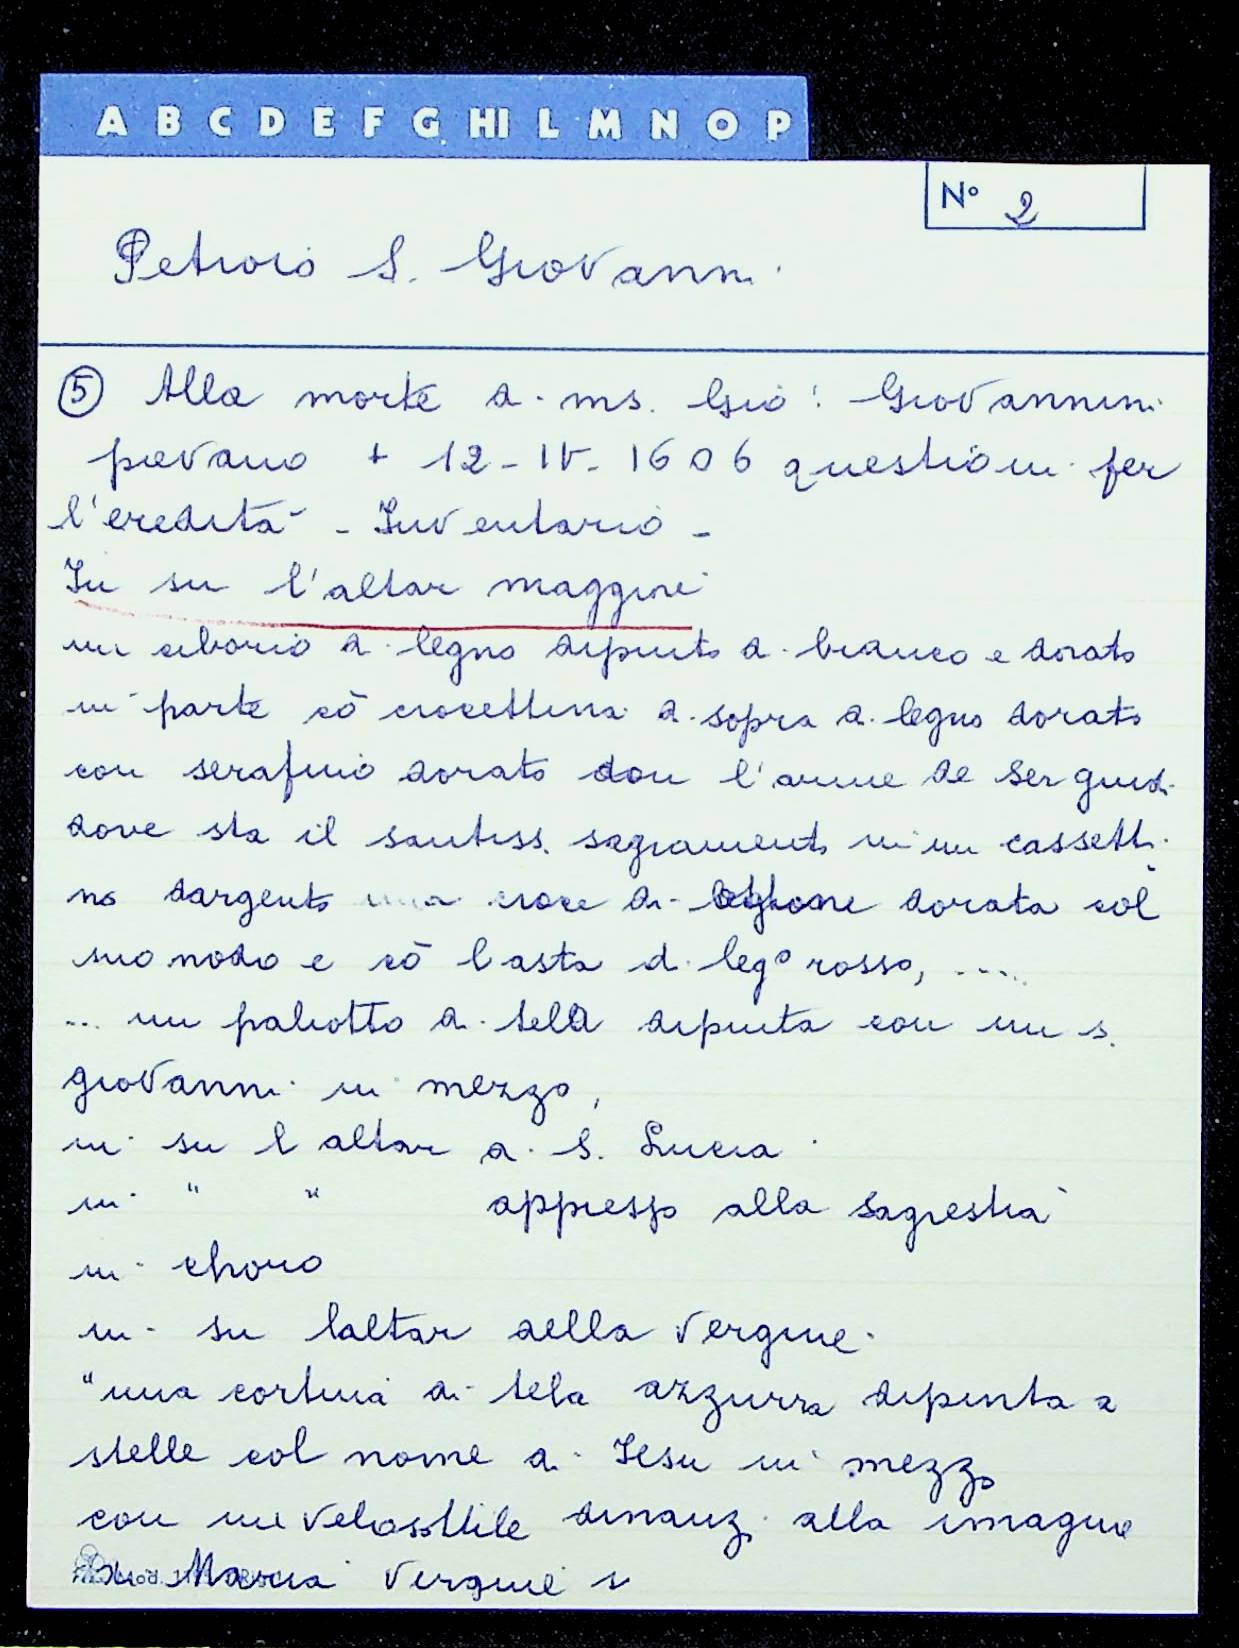 A B C D E F G HI L M N O P
N° 2
Petroio S. Giovanni
5 Alla morte di ms. Gio: Giovannini
pievano + 12-IV-1606 questioni per
l'eredità - Inventario -
In su l'altar maggiore
un ciborio di legno dipinto di bianco e dorato
in parte cō crocettina di sopra di legno dorato
con serafino dorato con l'arme de Ser guidi
dove sta il santiss. sagramento in un cassetti
no dargento una croce di ottone dorata col
suo nodo e cō l asta di leg° rosso, ....
... un paliotto di tela dipinta con un s.
giovanni in mezzo,
in su l altar di S. Lucia
in " " appresso alla sagrestia
in choro
in su laltar della Vergine.
"una cortina di tela azzurra dipinta a
stelle col nome di Iesu in mezzo
con un velo sottile dinanzi alla imagine
di Maria Vergine